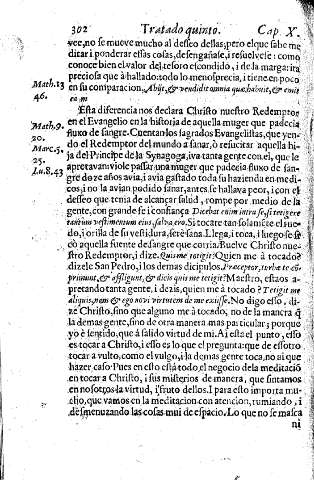 302 Tratado quinto. Cap X.
vee, no se mueve mucho al deseo dellas, pero el que sabe me
ditar i ponderar essas cosas, desengañase, i resuelvese: como
conoce bien el valor del tesoro escondido, i de la margarita
preciosa que à hallado: todo lo menosprecia, i tiene en poco
Math.13
46.
en su comparacion. Abijt, & vendidit omnia quæ habuit, & emit
eam
Esta diferencia nos declara Christo nuestro Redemptor
Math,9.
20.
Marc,5.
25.
Lu.8,43
en el Evangelio en la historia de aquella muger que padecia
fluxo de sangre. Cuentan los sagrados Evangelistas, que yen-
do el Redemptor del mundo a sanar, ò resucitar aquella hi-
ja del Principe de la Synagoga, iva tanta gente con el, que le
apretavan: viole passar una muger que padecia fluxo de san-
gre doze años avia, i avia gastado toda su hazienda en medi-
cos, i no la avian podido sanar, antes se hallava peor, i con el
desseo que tenia de alcançar salud, rompe por medio de la
gente, con grande fe i confiança Dicebat enim intra se, si tetigero
tantùm vestimentum eius, salva ero. Si tocare tan solamẽte el rue-
do, i orilla de su vestidura, serè sana. Llega, i toca, i luego se se
cò aquella fuente de sangre que corria. Buelve Christo nues-
tro Redemptor, i dize. Quis me tetigit? Quien me à tocado?
dizele San Pedro, i los demas dicipulos. Præceptor, turbæ te cõ-
primunt, & affligunt, & dicis quis me tetigit? Maestro, estaos a-
pretando tanta gente, i dezis, quien me à tocado? Tetigit me
aliquis, nam & ego novi virtutem de me exijsse. No digo esso, di-
ze Christo, sino que alguno me à tocado, no de la manera q̃
la demas gente, sino de otra manera mas particular; porque
yo è sentido, que à salido virtud de mi. Ai esta el punto, esso
es tocar a Christo, i esso es lo que el pregunta: que de essotro
tocar a vulto, como el vulgo, i la demas gente toca, no ai que
hazer caso. Pues en esto està todo el negocio de la meditaciõ
en tocar a Christo, i sus misterios de manera, que sintamos
en nosotros la virtud, i fruto dellos. I para esto importa mu-
cho, que vamos en la meditacion con atencion, rumiando, i
desmenuzando las cosas mui de espacio. Lo que no se masca
ni